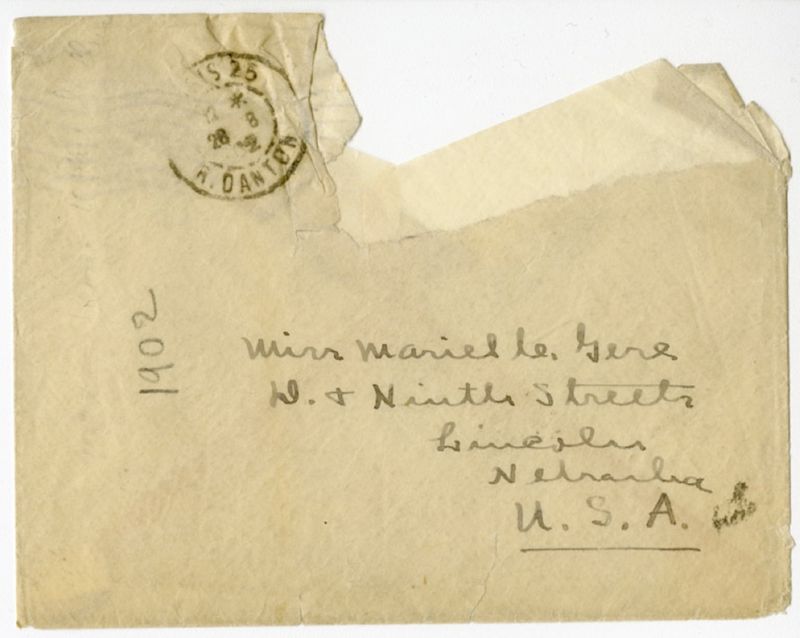 IS 25
* 
28 8
R. DANTON
1902
Miss Mariel le. Gere
D. & Ninth Streets
Lincoln
Nebraska
U. S. A.